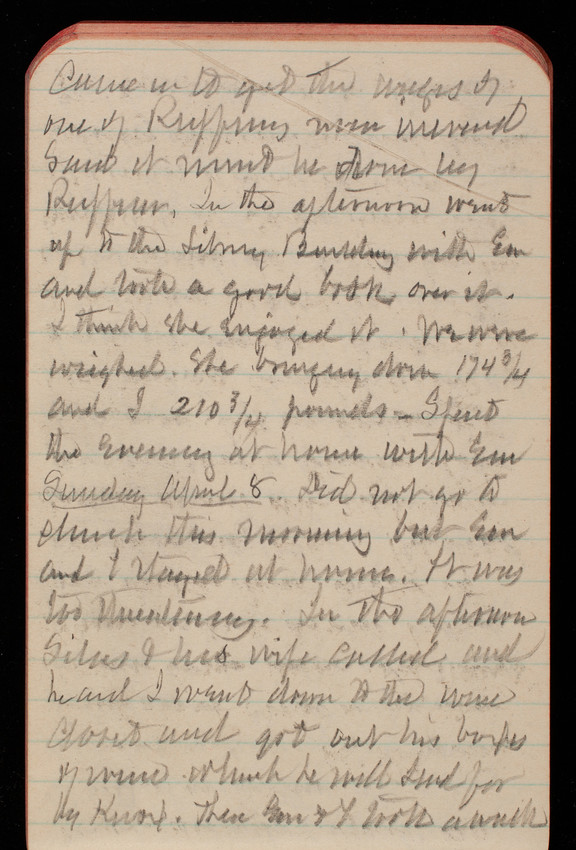 came in to get the wages of
one of Ruffners men
Said it must be done by
Ruffner. In the afternoon went
up to the Library Building with Em
and took a good look over it.
I think she enjoyed it. We were
weighed. She bringing down 174 3/4
and I 210 3/4 pounds - Spent
the Evening at home with Em
Sunday April 8. Did not go to
church this morning but Em
and I stayed at home. It was
too threatening. In the afternoon
Silas & his wife called and
he and I went down to the wine
closet and got out his boxes
of wine which he will send for
by Knox. Then Em & I took a walk